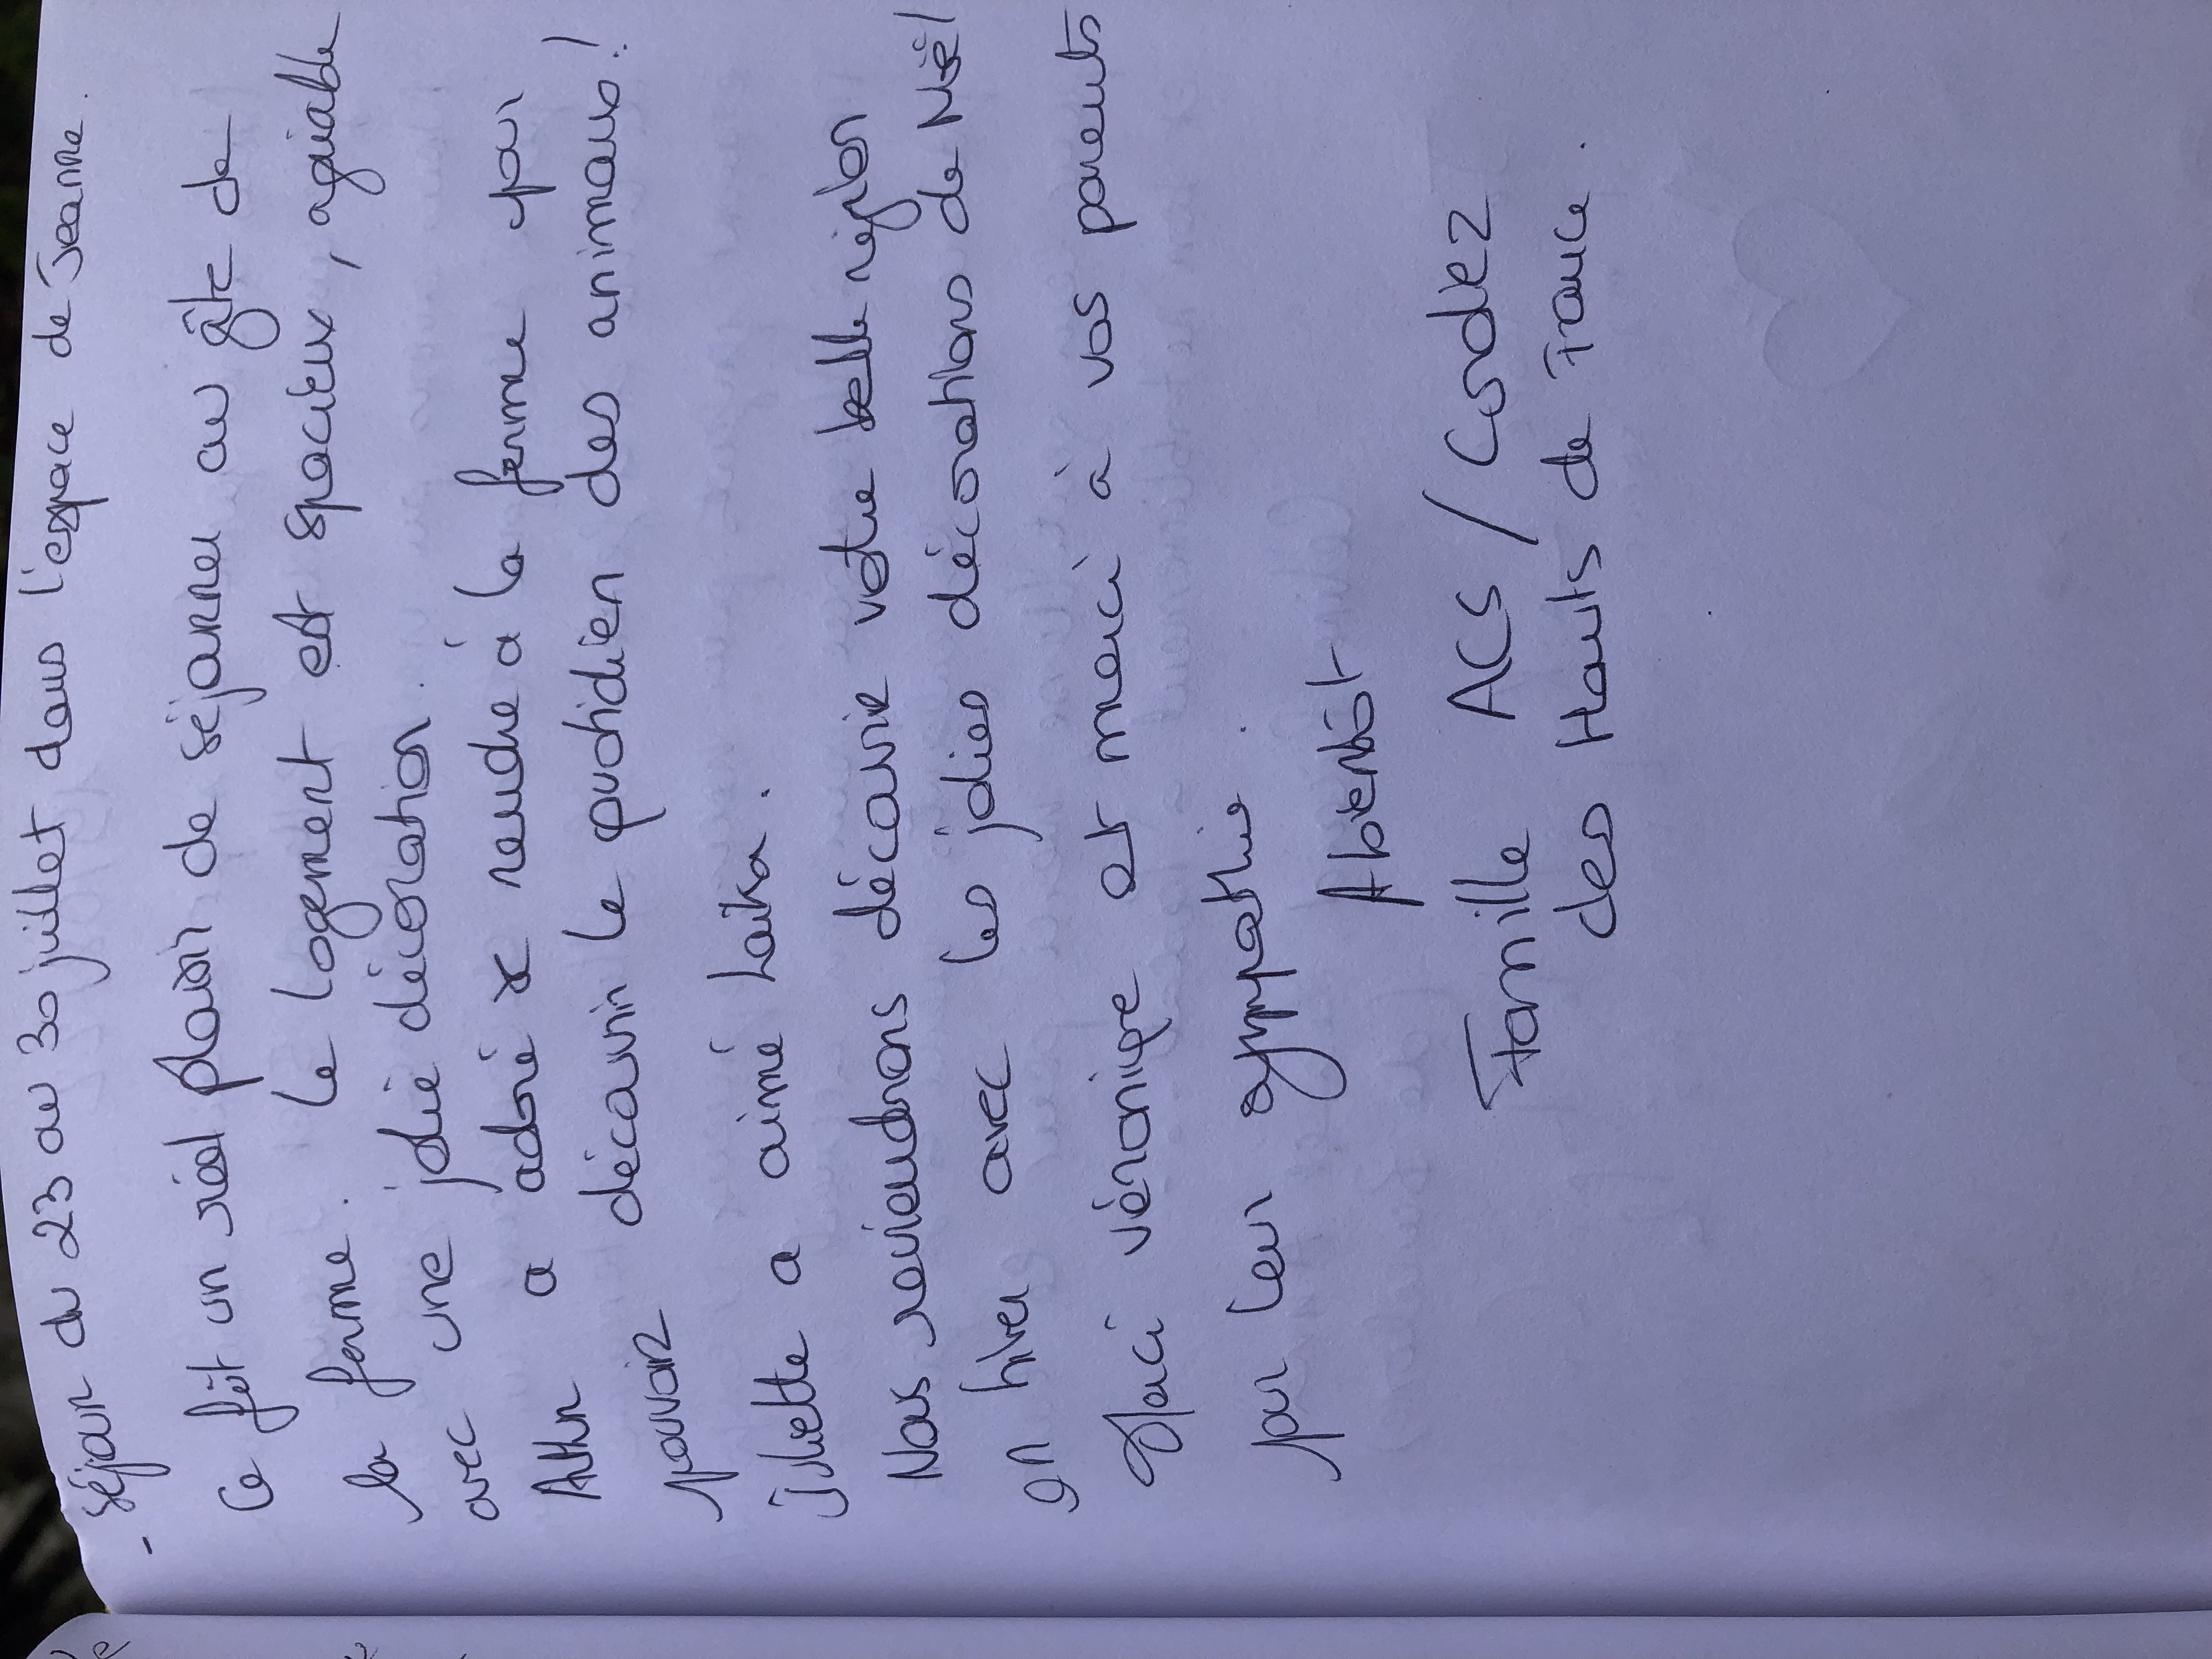 - Séjour du 23 au 30 juillet dans l'espace de Jeanne.
Ce fût un réel plaisir de séjourner au gîte de
la ferme. Le logement est spacieux, agréable
avec une jolie décoration.
Arthur a adoré se rendre à la ferme pour
pouvoir découvrir le quotidien des animaux !
Juliette a aimé Laïka.
Nous reviendrons découvrir votre belle région
en hiver avec les jolies décorations de Noël
Merci véronique et merci à vos parents
pour leur sympathie.
A bientôt
Famille ACS / Cordez
des Hauts de France.